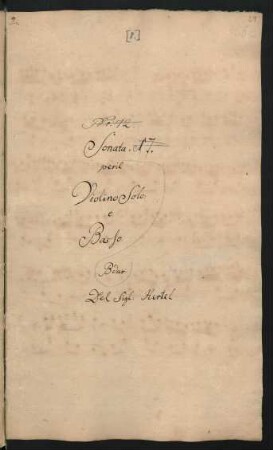 [8.]
Sonata N 7.
per il
Violino Solo
e
Basso
B dur
Del Sigl: Hertel